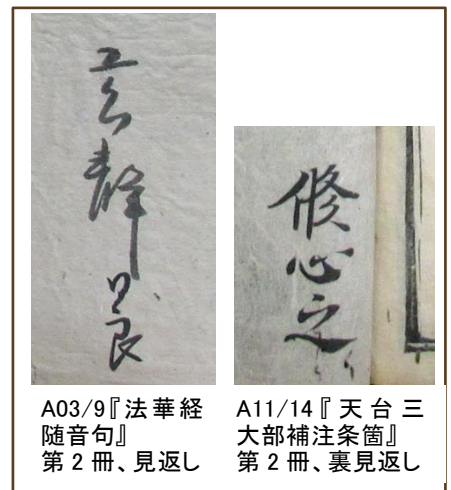 静
良
修心之
A03/9『法華経
随音句』
第2冊、見返し
A11/14『天台三
大部補注条箇』
第2冊、裏見返し